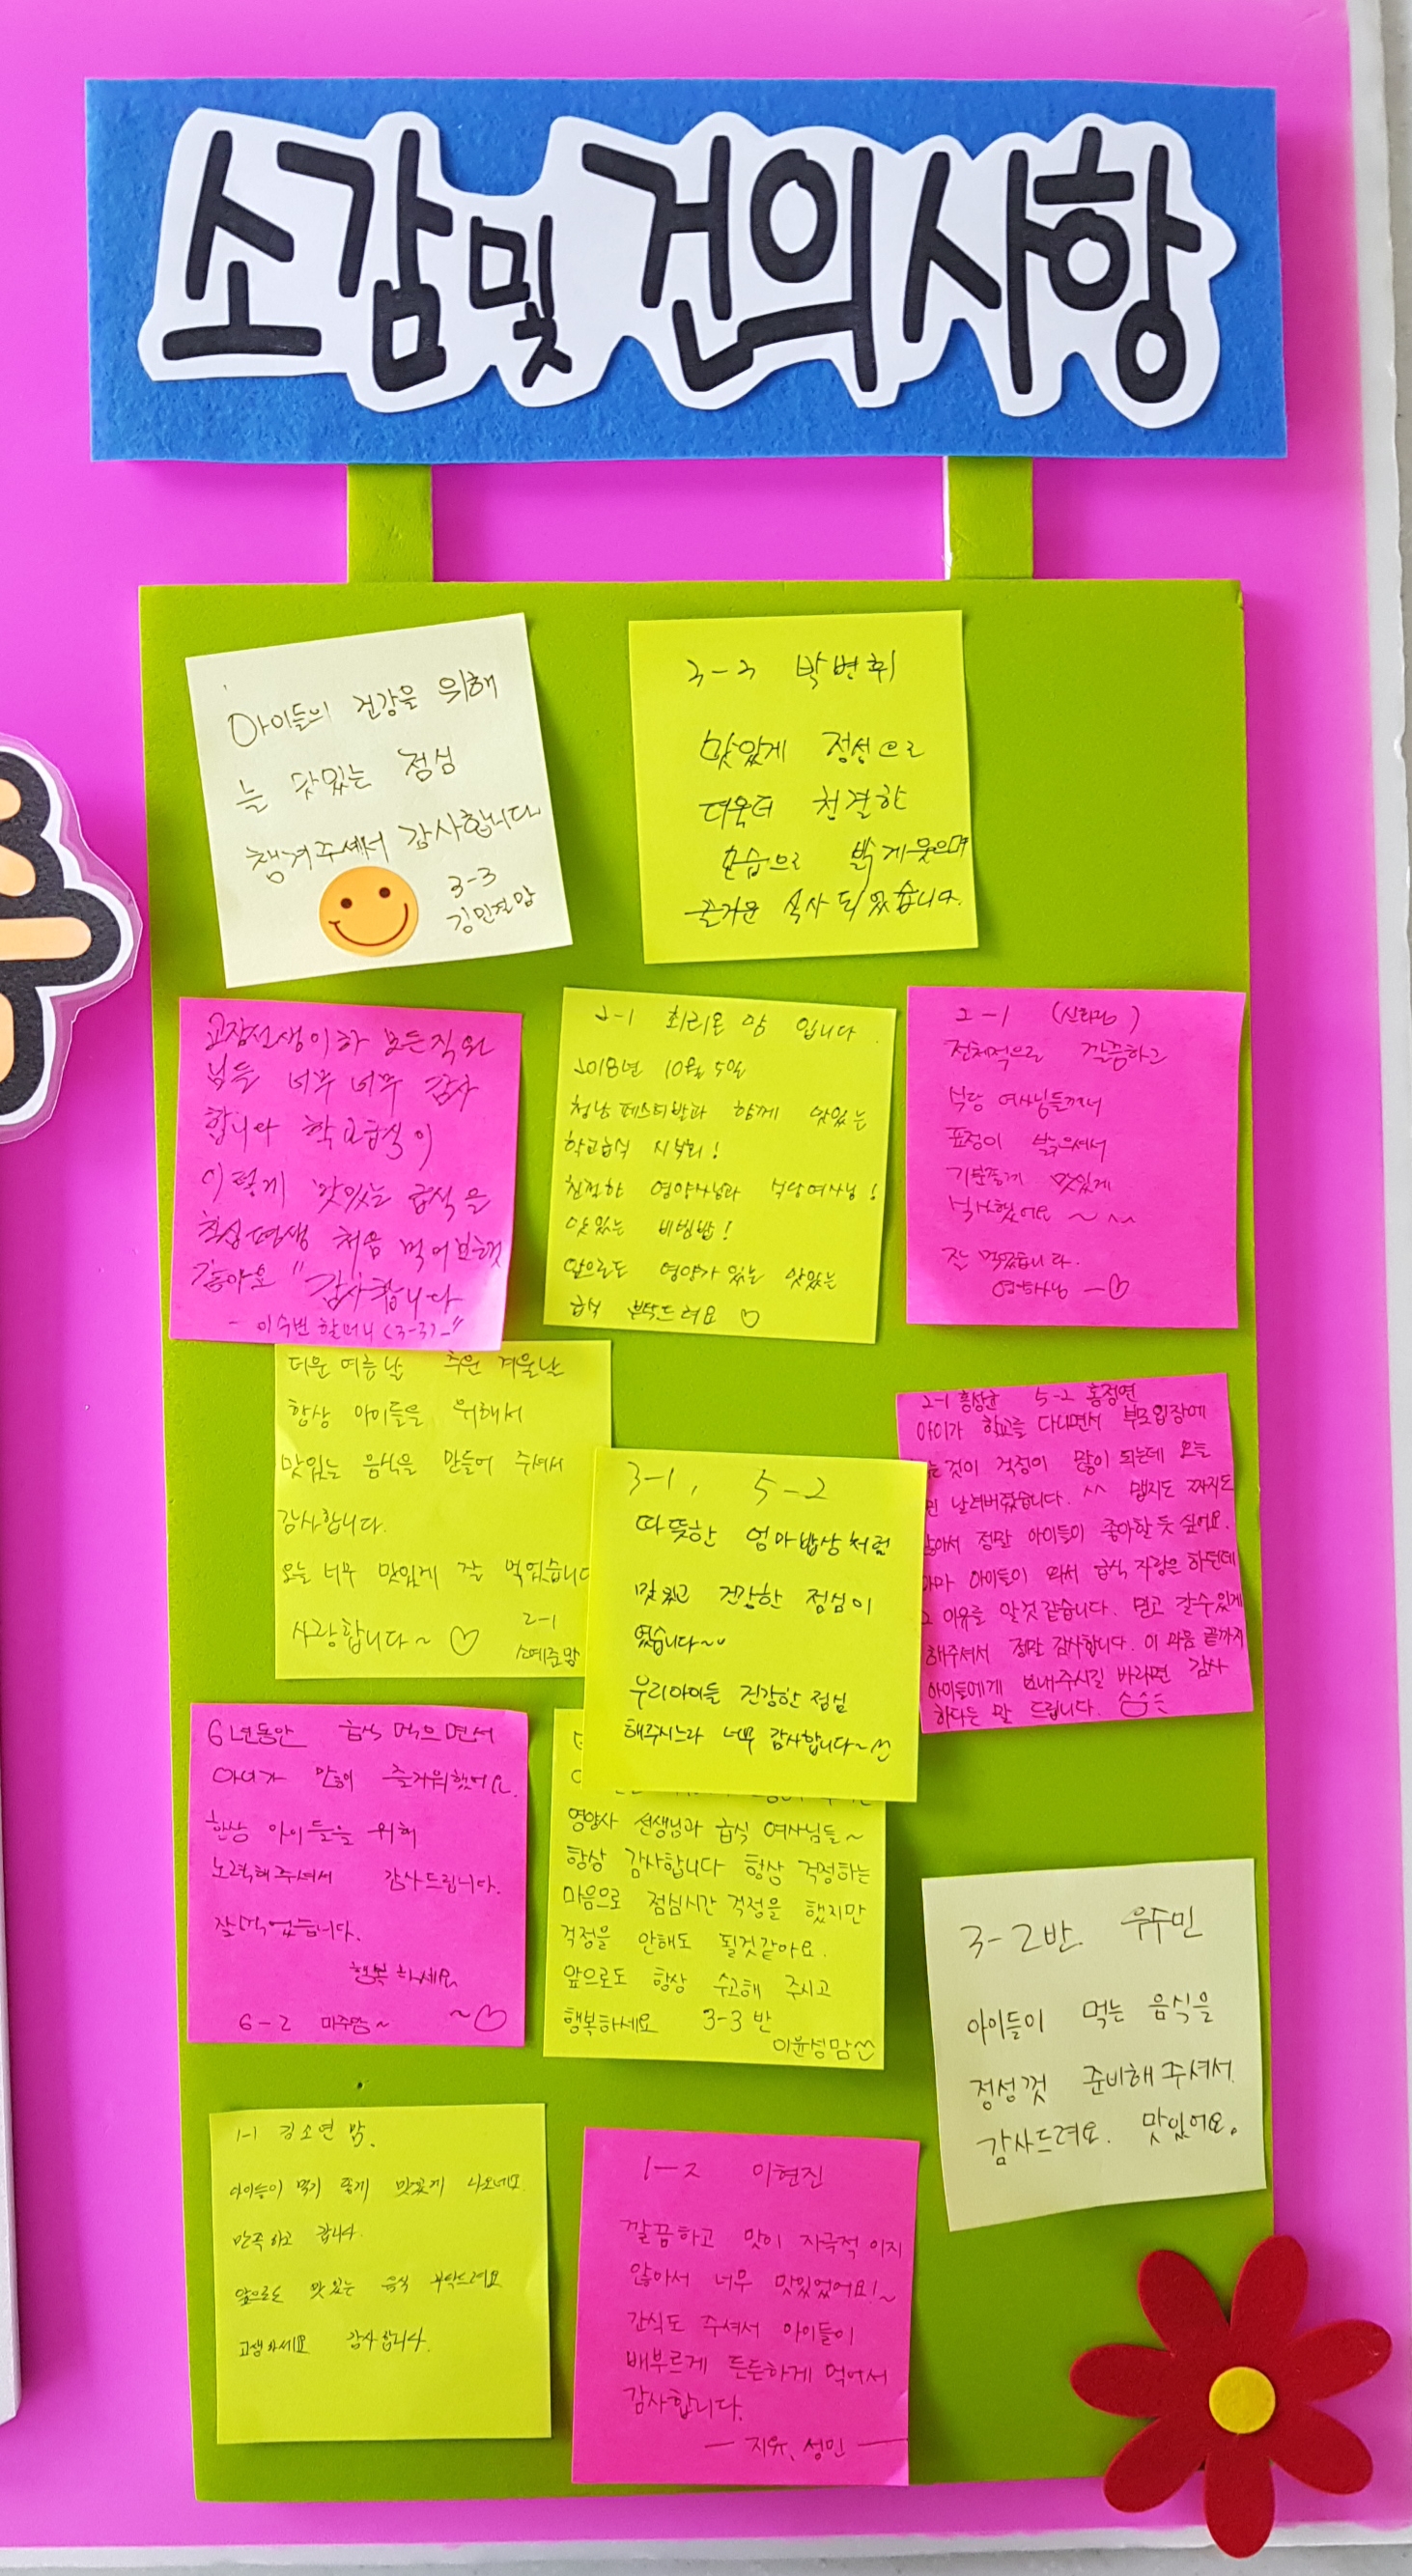 소감및 건의사항
아이들의 건강을 위해
늘 맛있는 점심
챙겨주셔서 감사합니다
3-3
3-3 박변휘
맛있게 정성으로
더욱더 청결한
모습으로 밝게 웃으며
즐거운 식사 되었습니다.
교장선생이하 모든직원
님들 너무 너무 감사
합니다 학교급식이
이렇게 맛있는 급식을
처음 먹어보는것
같아요 " 감사합니다
할머니 (3-3)-"
2-1 최리온 맘 입니다
2018년 10월 5일
청남페스티발과 함께 맛있는
학교급식 시식회!
친절한 영양사님과 식당여사님!
맛있는 비빔밥!
앞으로도 영양가 있는 맛있는
급식 부탁드려요 ♡
2-1
전체적으로 깔끔하고
식당 여사님들께서
표정이 밝으셔서
기분좋게 맛있게
식사했어요 ~
잘 먹었습니다.
♡
더운 여름날 추운 겨울날
항상 아이들을 위해서
맛있는 음식을 만들어 주셔서
감사합니다.
오늘 너무 맛있게 잘 먹었습니다
사랑합니다~ ♡
2-1
소예준맘
3-1, 5-2
따뜻한 엄마밥상처럼
맛있고 건강한 점심이
였습니다~
우리아이들 건강한 점심
해주시느라 너무 감사합니다~
2-1 홍성균 5-2 홍정연
아이가 학교를 다니면서 부모입장에
는것이 걱정이 많이 되는데 오늘
날려버렸습니다. ^^ 맵지도 짜지도
않아서 정말 아이들이 좋아할듯 싶어요.
아마 아이들이 와서 급식 자랑을 하던데
그 이유를 알것 같습니다. 믿고 갈수있게
해주셔서 정말 감사합니다. 이 마음 끝까지
아이들에게 보내주시길 바라면 감사
하다는 말 드립니다.
6년동안 급식 먹으면서
아녀가 많이 즐거워했어요.
항상 아이들을 위해
노력해주셔서 감사드립니다.
잘먹었습니다.
행복하세요
~♡
6-2 미주맘~
영양사 선생님과 급식 여사님들~
항상 감사합니다 항상 걱정하는
마음으로 점심시간 걱정을 했지만
걱정을 안해도 될것같아요.
앞으로도 항상 수고해 주시고
행복하세요 3-3반
이윤성맘
3-2반. 우두민
아이들이 먹는 음식을
정성껏 준비해 주셔서
감사드려요. 맛있어요.
1-1 김소연 맘.
아이들이 먹기 좋게 맛있게 나오네요
만족하고 갑니다.
앞으로도 맛있는 음식 부탁드려요
고생하세요 감사합니다.
1-2 이현진
깔끔하고 맛이 자극적 이지
않아서 너무 맛있었어요!~
간식도 주셔서 아이들이
배부르게 든든하게 먹어서
감사합니다.
— 지유, 성민 —